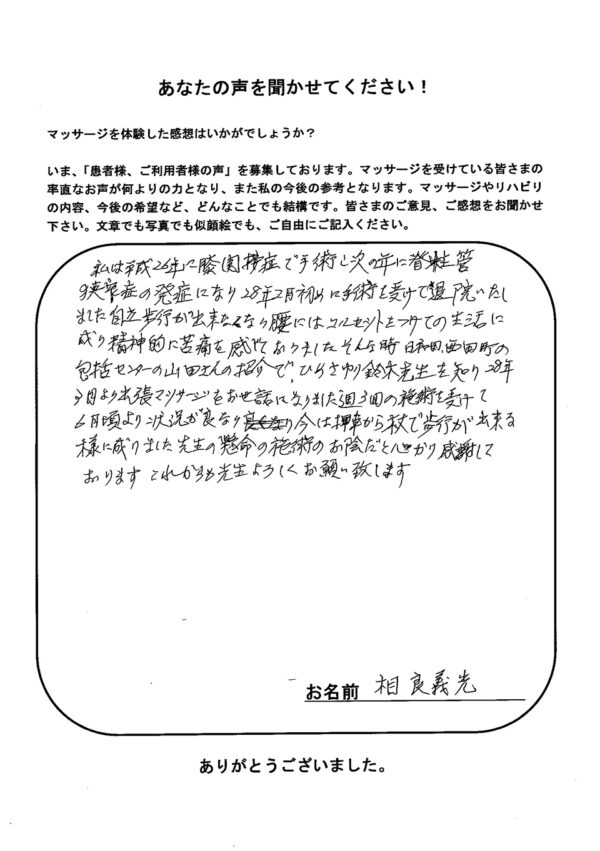 あなたの声を聞かせてください！
マッサージを体験した感想はいかがでしょうか？
いま、「患者様、ご利用者様の声」を募集しております。マッサージを受けている皆さまの
率直なお声が何よりの力となり、また私の今後の参考となります。マッサージやリハビリ
の内容、今後の希望など、どんなことでも結構です。皆さまのご意見、ご感想をお聞かせ
下さい。文章でも写真でも似顔絵でも、ご自由にご記入ください。
私は平成26年に膝関節症で手術し次の年に脊柱管
狭窄症の発症になり28年2月初めに手術を受けて退院いたし
ました自立歩行が出来なくなり腰にはコルセットをつけての生活に
成り精神的に苦痛を感じておりましたそんな時 西田町の
包括センターの山田さんの紹介で、ひらさゆり鈴木先生を知り28年
3月より出張マッサージをお世話になりました週3回の施術を受けて
6月頃より状況が良なり 今は押車から杖で歩行が出来る
様に成りました先生の懸命の施術のお陰だと心より感謝して
おります これからも先生よろしくお願い致します
お名前 相良義光
ありがとうございました。